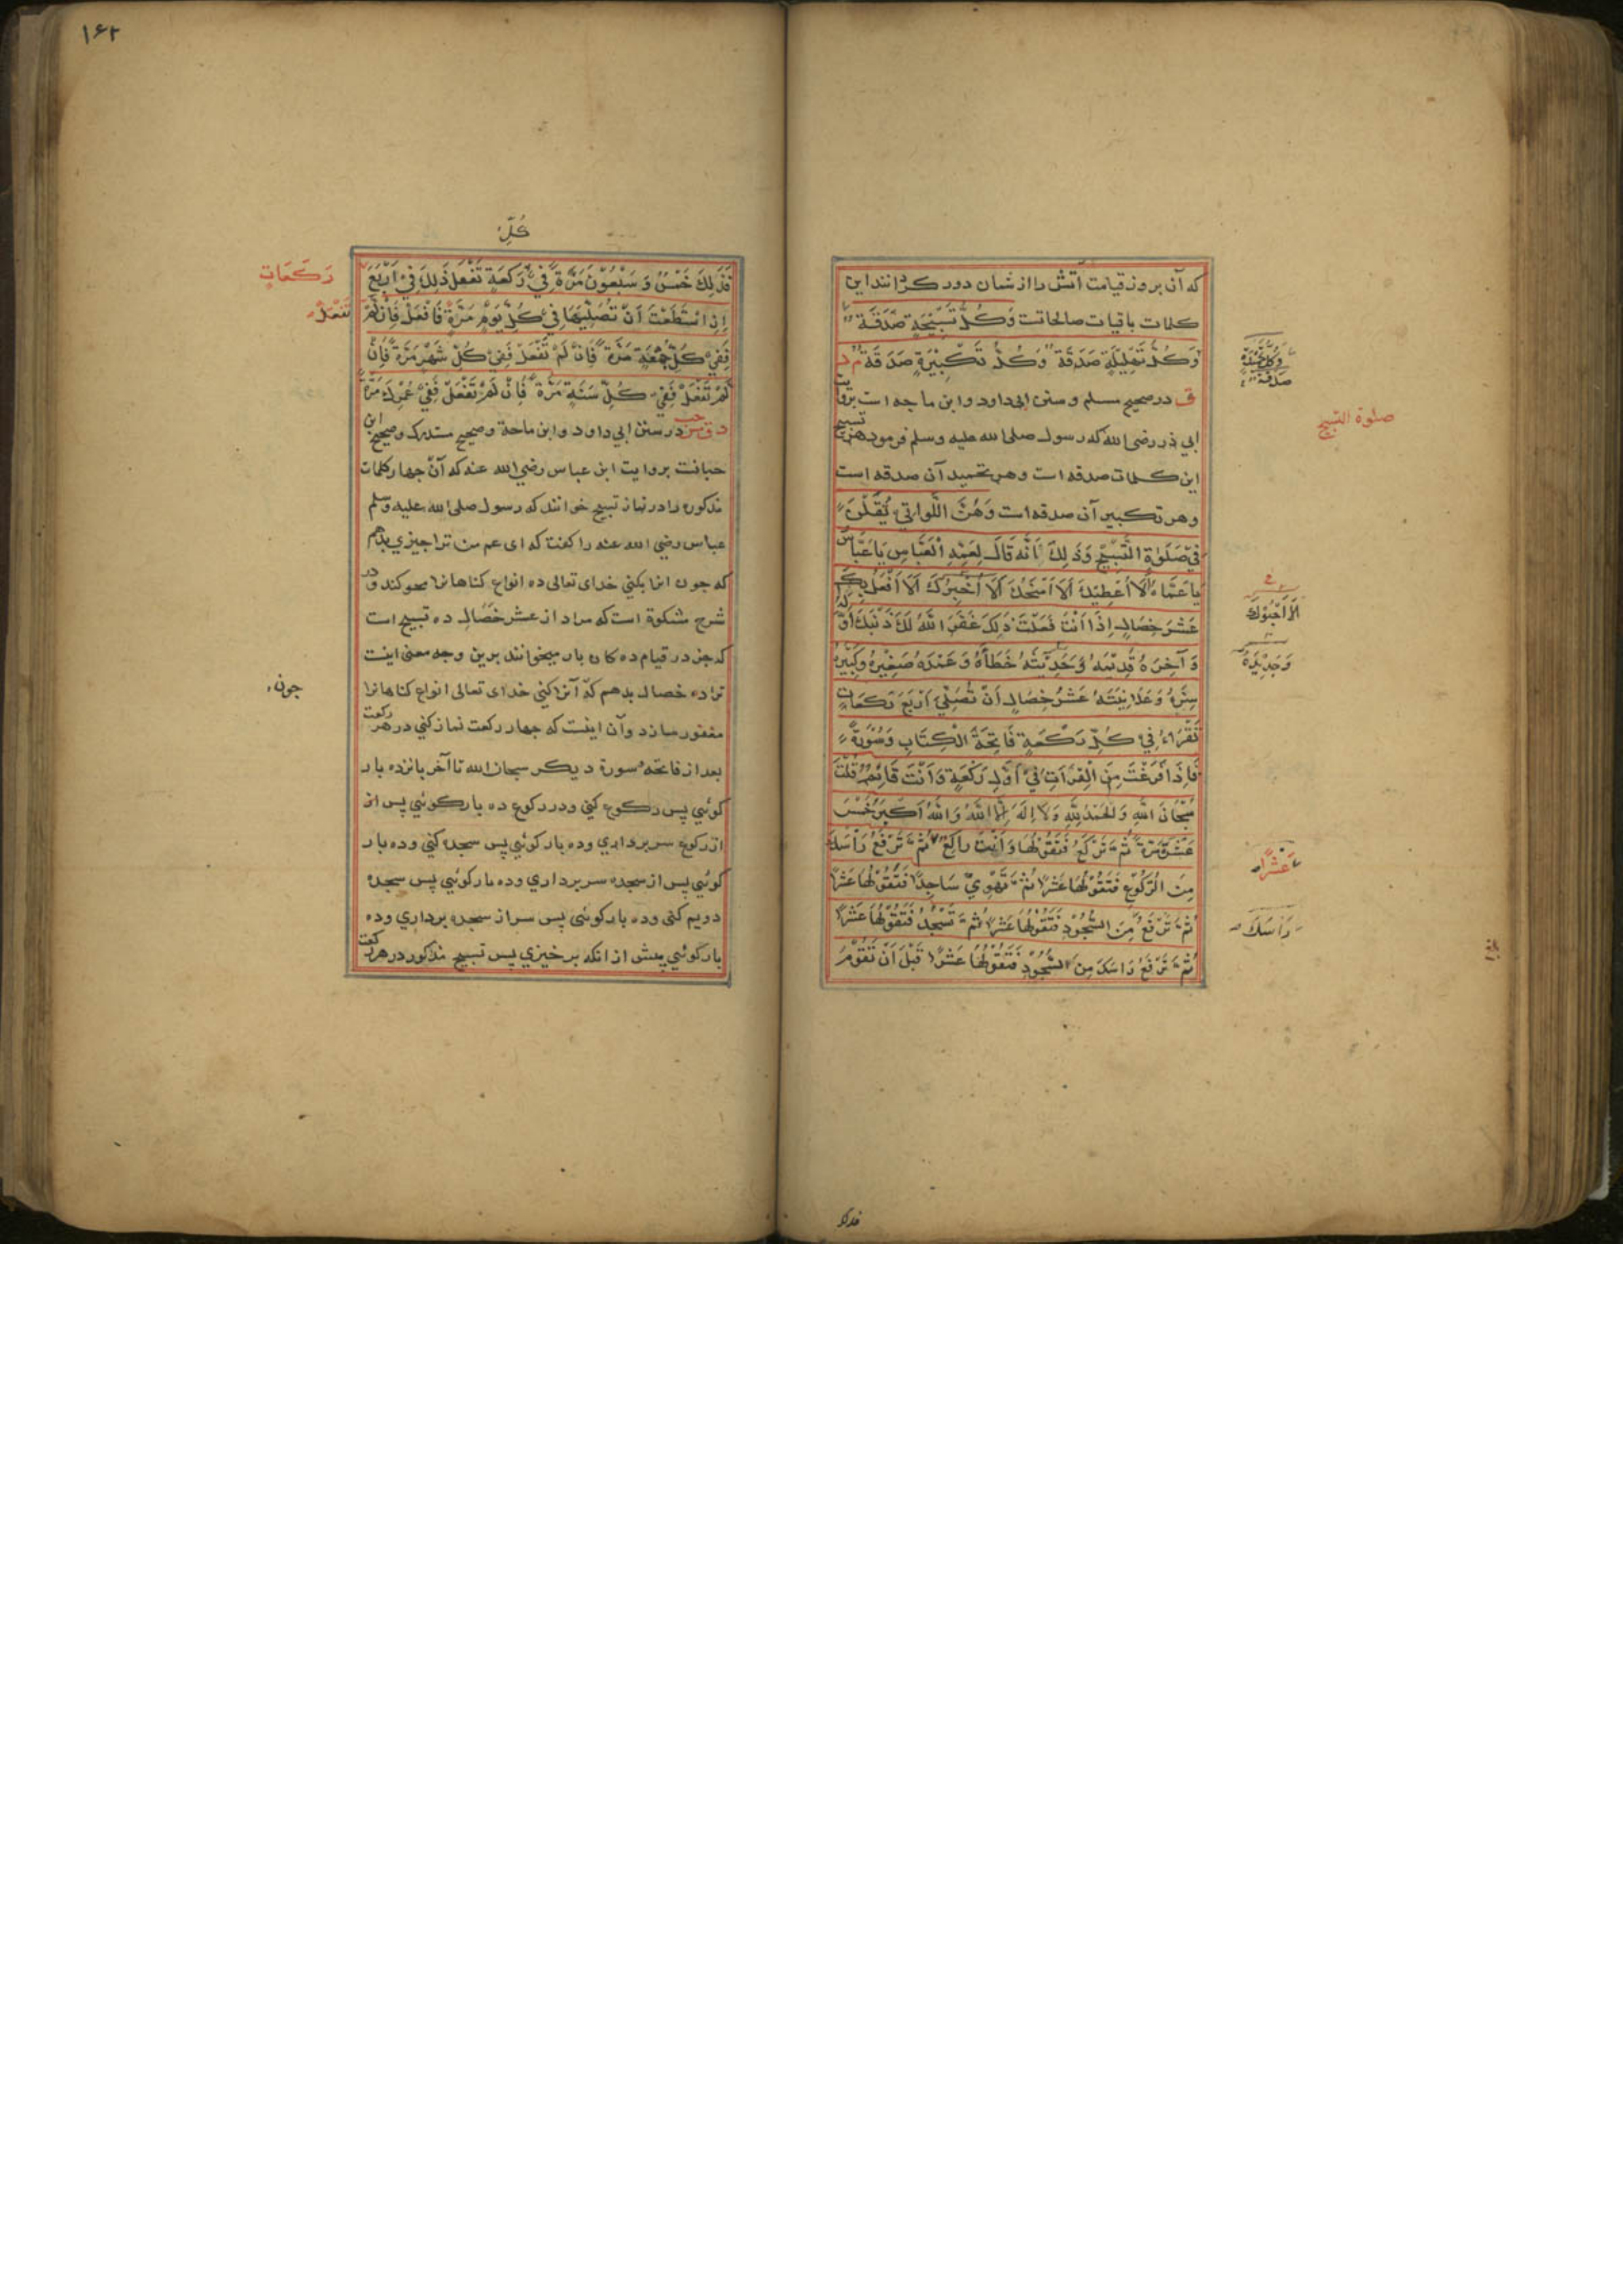 که آن بروز قیامت آتش را از شان دور کرد انند این
کلمات باقیات صالحاتست وَكُلُّ تَسْبِيْحَةٍ صَدَقَةٌ
وَكُلُّ تَهْلِيْلَةٍ صَدَقَةٌ وَكُلُّ تَكْبِيْرَةٍ صَدَقَةٌ م د
وَكُلُّ تَحْمِيْدَةٍ صَدَقَةٌ
ق در صحیح مسلم و سنن ابی داود و ابن ماجه است بروایت
صلوة التسبیح
ابی ذر رضی الله که رسول صلی الله علیه وسلم فرمود هر تسبیح
این کلمات صدقه است و هر تحمید آن صدقه است
و هر تکبیر آن صدقه است وَهُنَّ اللَّوَاتِيْ يُقَلْنَ
فِيْ صَلٰوةِ التَّسْبِيْحِ وَذٰلِكَ اَنَّهُ قَالَ لِعَمِّهِ الْعَبَّاسِ يَا عَبَّاسُ
يَا عَمَّاهُ اَلَا اُعْطِيْكَ اَلَا اَمْنَحُكَ اَلَا اُخْبِرُكَ اَلَا اَفْعَلُ بِكَ
اَلَا اَحْبُوْكَ
عَشْرَ خِصَالٍ اِذَا اَنْتَ فَعَلْتَ ذٰلِكَ غَفَرَ اللّٰهُ لَكَ ذَنْبَكَ اَوَّلَهُ
وَ آخِرَهُ قَدِيْمَهُ وَحَدِيْثَهُ خَطَأَهُ وَعَمْدَهُ صَغِيْرَهُ وَكَبِيْرَهُ
وَجَدِيْدَهُ
سِرَّهُ وَعَلَانِيَتَهُ عَشْرُ خِصَالٍ اَنْ تُصَلِّيَ اَرْبَعَ رَكَعَاتٍ
تَقْرَاءُ فِيْ كُلِّ رَكْعَةٍ فَاتِحَةَ الْكِتَابِ وَسُوْرَةً
فَاِذَا فَرَغْتَ مِنَ الْقِرَاتِ فِيْ اَوَّلِ رَكْعَةٍ وَاَنْتَ قَائِمٌ قُلْتَ
سُبْحَانَ اللّٰهِ وَالْحَمْدُ لِلّٰهِ وَلَا اِلٰهَ اِلَّا اللّٰهُ وَاللّٰهُ اَكْبَرُ خَمْسَ
عَشْرَةَ مَرَّةً ثُمَّ تَرْكَعُ فَتَقُوْلُهَا وَاَنْتَ رَاكِعٌ ثُمَّ تَرْفَعُ رَأْسَكَ
عَشْرًا
مِنَ الرُّكُوْعِ فَتَقُوْلُهَا عَشْرًا ثُمَّ تَهْوِيْ سَاجِدًا فَتَقُوْلُهَا عَشْرًا
ثُمَّ تَرْفَعُ مِنَ السُّجُوْدِ فَتَقُوْلُهَا عَشْرًا ثُمَّ تَسْجُدُ فَتَقُوْلُهَا عَشْرًا
رَاْسَكَ
ثُمَّ تَرْفَعُ رَاسَكَ مِنَ السُّجُوْدِ فَتَقُوْلُهَا عَشْرًا قَبْلَ اَنْ تَقُوْمَ
فذلك
۱۶۲
كُلِّ
فَذٰلِكَ خَمْسٌ وَسَبْعُوْنَ مَرَّةً فِيْ رَكْعَةٍ تَفْعَلُ ذٰلِكَ فِيْ اَرْبَعِ
رَكَعَاتٍ
اِذَا اسْتَطَعْتَ اَنْ تُصَلِّيَهَا فِيْ كُلِّ يَوْمٍ مَرَّةً فَافْعَلْ فَاِنْ لَمْ
تَفْعَلْ
فَفِيْ كُلِّ جُمْعَةٍ مَرَّةً فَاِنْ لَمْ تَفْعَلْ فَفِيْ كُلِّ شَهْرٍ مَرَّةً فَاِنْ
لَمْ تَفْعَلْ فَفِيْ كُلِّ سَنَةٍ مَرَّةً فَاِنْ لَمْ تَفْعَلْ فَفِيْ عُمْرِكَ مَرَّةً
د ق مس حب در سنن ابی داود و ابن ماجة و صحیح مستدرک و صحیح ابن
حبانست بروایت ابن عباس رضی الله عنه که آن چهار کلمات
مذکوره را در نماز تسبیح خوانند که رسول صلی الله علیه وسلم
عباس رضی الله عنه را کفت که ای عم من ترا چیزی بدهم
که چون انرا بکنی خدای تعالی ده انواع کناهانرا محو کند و در
شرح مشکوة است که مراد از عشر خصال ده تسبیح است
که جز در قیام ده کان بار میخوانند برین وجه معنی اینست
ترا ده خصال بدهم که آنرا کنی خدای تعالی انواع کناهانرا
چون
مغفور سازد و آن اینست که چهار رکعت نماز کنی در هر رکعت
بعد از فاتحه و سورة دیکر سبحان الله تا آخر پانزده بار
کوئی پس رکوع کنی و در رکوع ده بار کوئی پس از
از رکوع سر برداری و ده بار کوئی پس سجده کنی و ده بار
کوئی پس از سجده سر برداری و ده بار کوئی پس سجده
دویم کنی و ده بار کوئی پس سر از سجده برداری و ده
بار کوئی پیش از انکه برخیزی پس تسبیح مذکور در هر رکعت